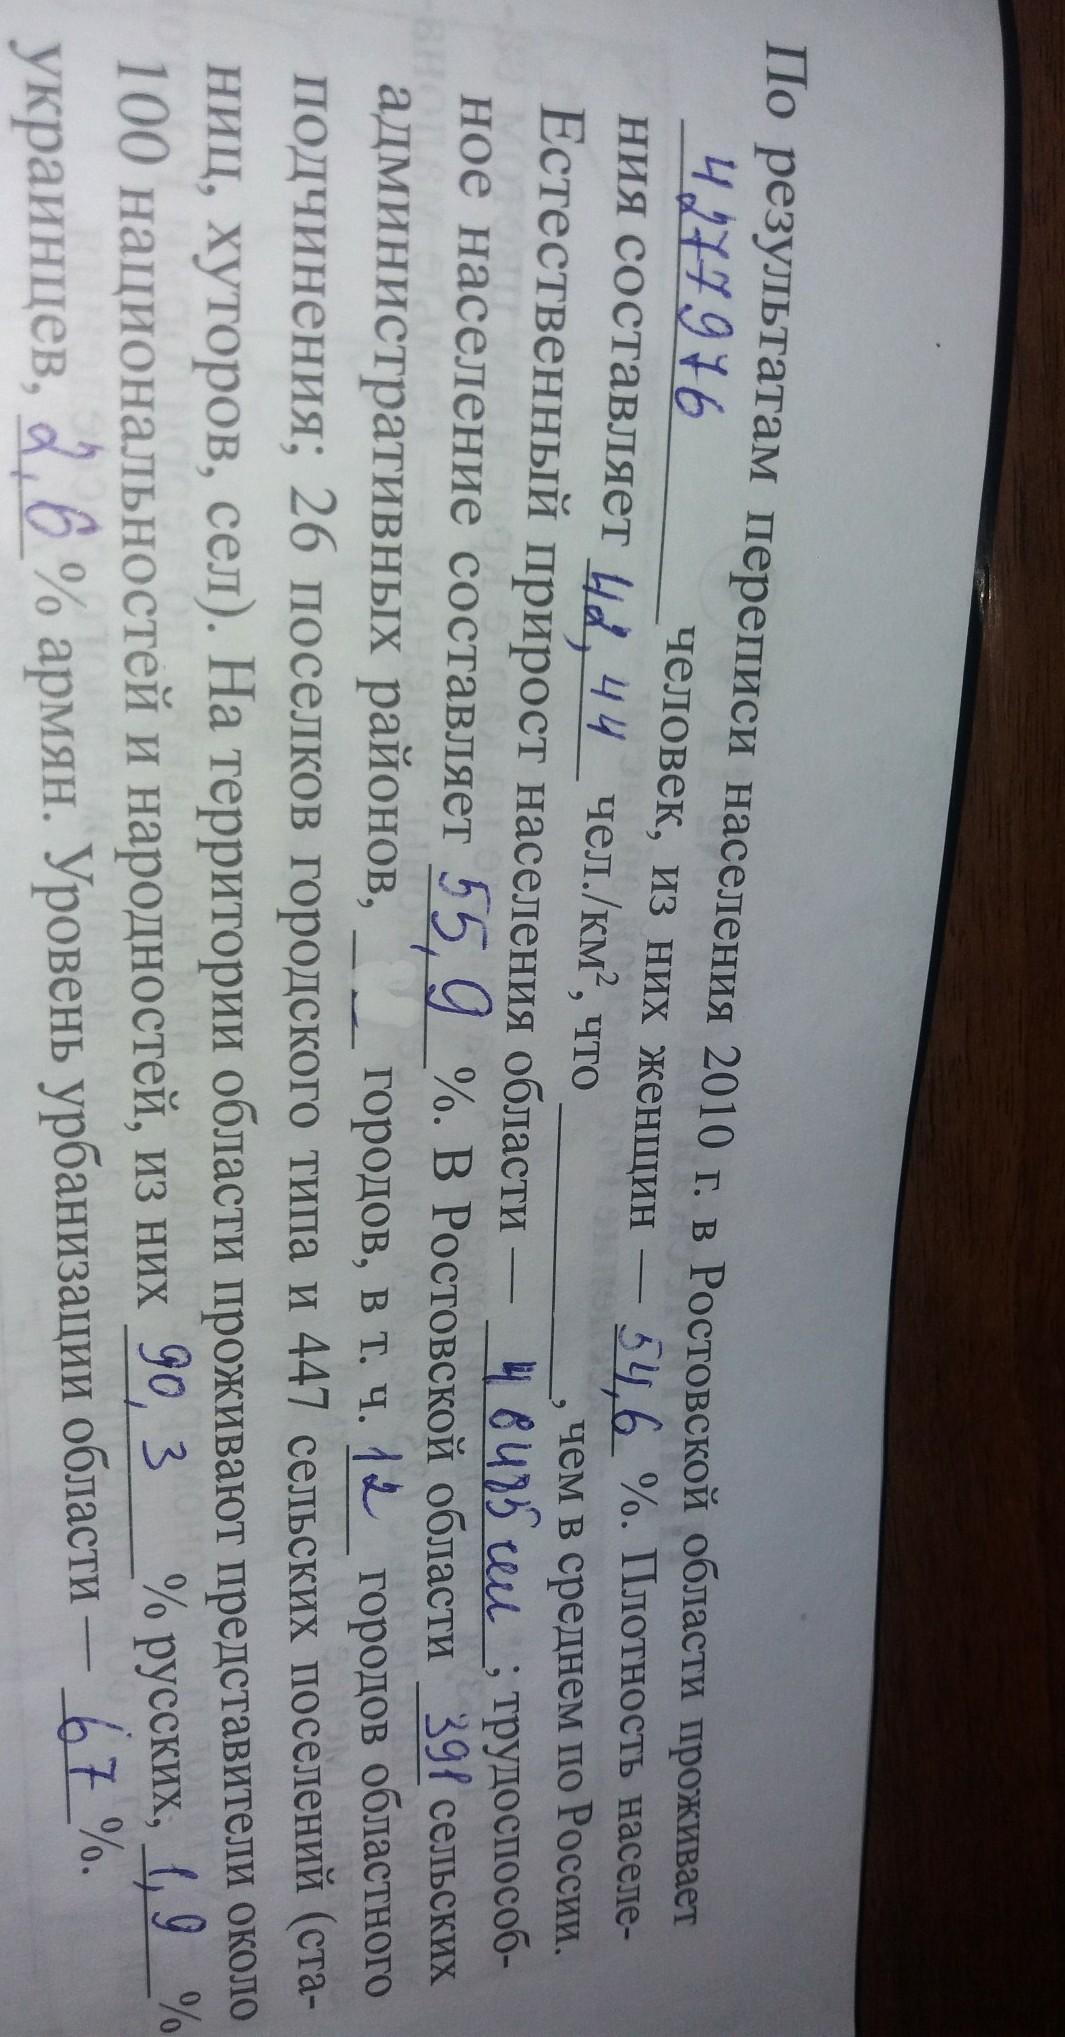 По результатам переписи населения 2010 г. в Ростовской области проживает
4277976 человек, из них женщин — 54,6 %. Плотность населе-
ния составляет 42,44 чел./км², что ____________, чем в среднем по России.
Естественный прирост населения области — ; трудоспособ-
ное население составляет 55,9 %. В Ростовской области 391 сельских
административных районов, ____ городов, в т. ч. 12 городов областного
подчинения; 26 поселков городского типа и 447 сельских поселений (ста-
ниц, хуторов, сел). На территории области проживают представители около
100 национальностей и народностей, из них 90,3 % русских, 1,9 %
украинцев, 2,6 % армян. Уровень урбанизации области — 67 %.